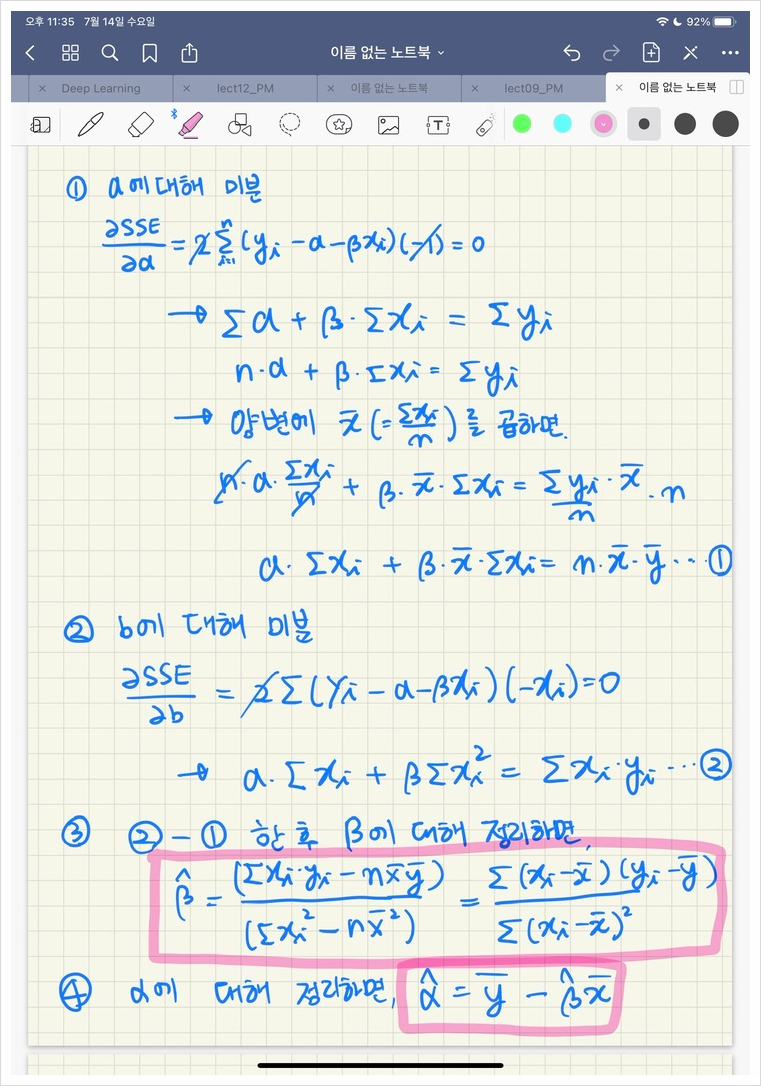 오후 11:35 7월 14일 수요일 92%
이름 없는 노트북
Deep Learning lect12_PM 이름 없는 노트북 lect09_PM 이름 없는 노트북
① α에 대해 미분
∂SSE/∂α = 2 Σ_{i=1}^{n} (y_i - α - βx_i)(-1) = 0
→ Σα + β·Σx_i = Σy_i
n·α + β·Σx_i = Σy_i
→ 양변에 x̄ (= Σx_i/n) 를 곱하면.
n·α·Σx_i/n + β·x̄·Σx_i = Σy_i/n · x̄ · n
α·Σx_i + β·x̄·Σx_i = n·x̄·ȳ ··· ①
② b에 대해 미분
∂SSE/∂b = 2Σ(y_i - α - βx_i)(-x_i) = 0
→ α·Σx_i + βΣx_i² = Σx_i·y_i ··· ②
③ ② - ① 한 후 β에 대해 정리하면,
β̂ = (Σx_i·y_i - nx̄ȳ)/(Σx_i² - nx̄²) = Σ(x_i - x̄)(y_i - ȳ)/Σ(x_i - x̄)²
④ α에 대해 정리하면, α̂ = ȳ - β̂x̄